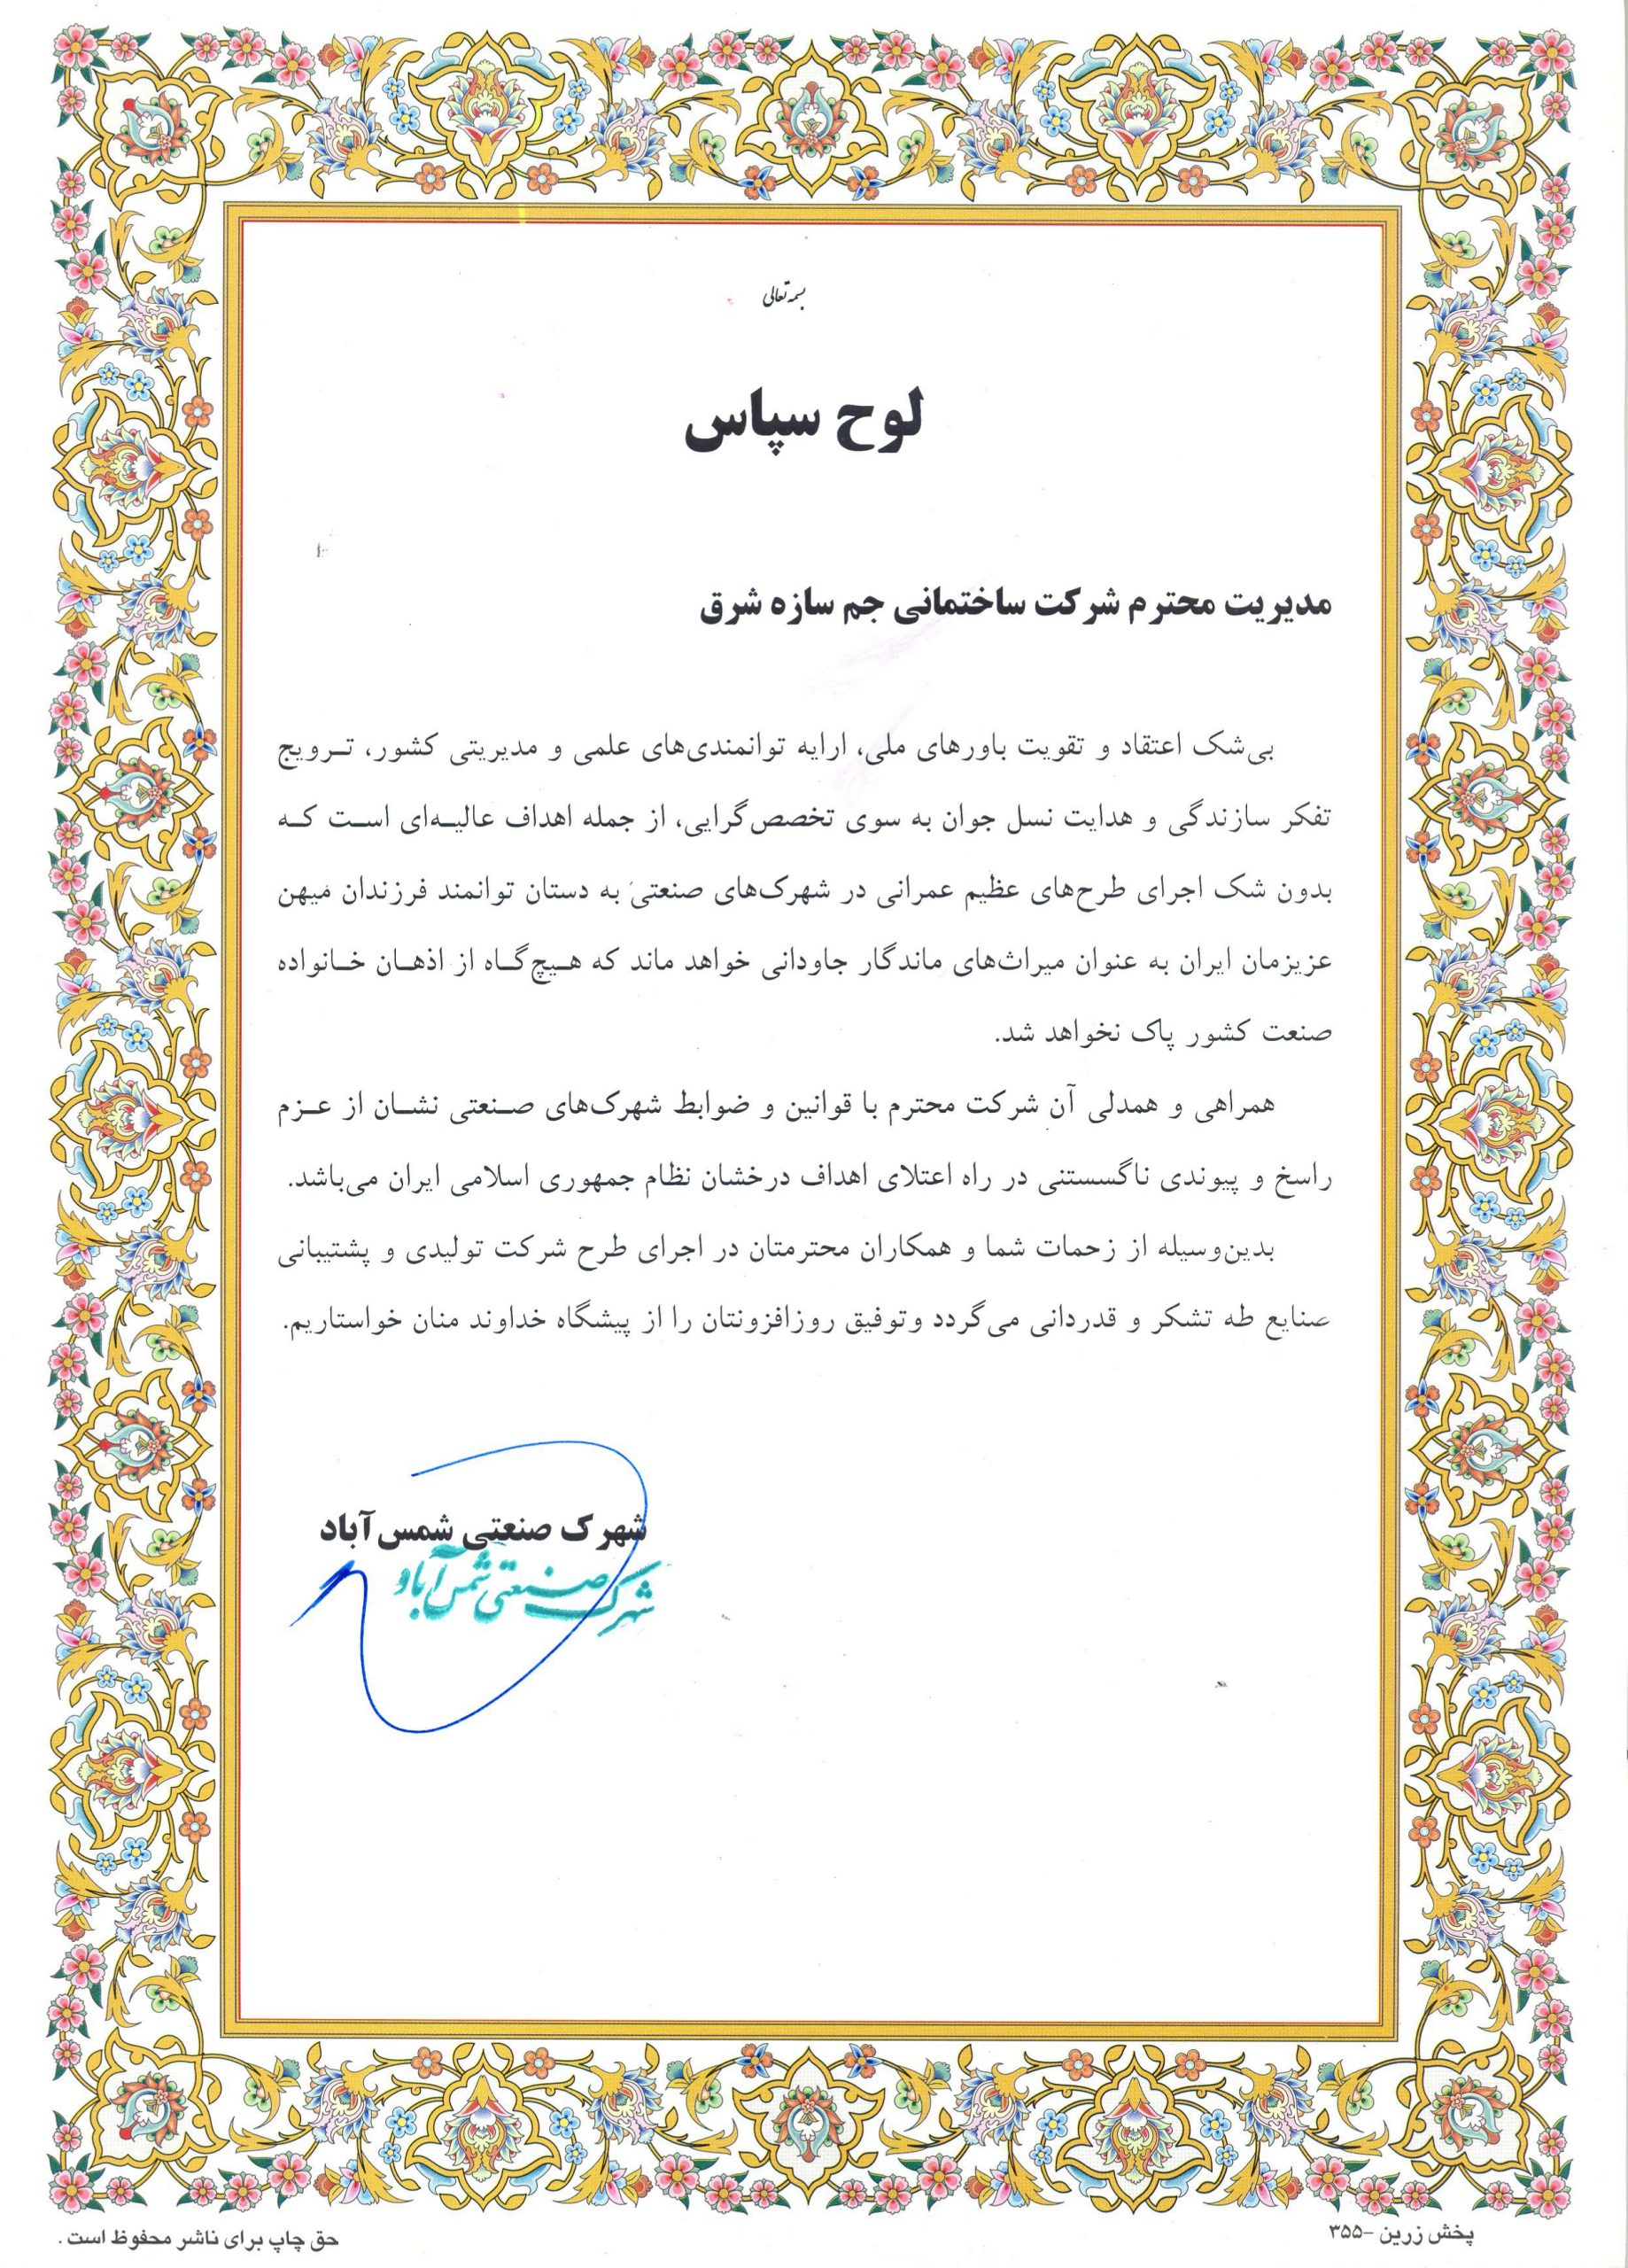 بسمه تعالی
لوح سپاس
مدیریت محترم شرکت ساختمانی جم سازه شرق
بی‌شک اعتقاد و تقویت باورهای ملی، ارایه توانمندی‌های علمی و مدیریتی کشور، تـرویج
تفکر سازندگی و هدایت نسل جوان به سوی تخصص‌گرایی، از جمله اهداف عالیـه‌ای اسـت کـه
بدون شک اجرای طرح‌های عظیم عمرانی در شهرک‌های صنعتی به دستان توانمند فرزندان میهن
عزیزمان ایران به عنوان میراث‌های ماندگار جاودانی خواهد ماند که هـیچ‌گـاه از اذهـان خـانواده
صنعت کشور پاک نخواهد شد.
همراهی و همدلی آن شرکت محترم با قوانین و ضوابط شهرک‌های صـنعتی نشـان از عـزم
راسخ و پیوندی ناگسستنی در راه اعتلای اهداف درخشان نظام جمهوری اسلامی ایران می‌باشد.
بدین‌وسیله از زحمات شما و همکاران محترمتان در اجرای طرح شرکت تولیدی و پشتیبانی
صنایع طه تشکر و قدردانی می‌گردد وتوفیق روزافزونتان را از پیشگاه خداوند منان خواستاریم.
شهرک صنعتی شمس‌آباد
شهرک صنعتی شمس آباد
پخش زرین -۳۵۵
حق چاپ برای ناشر محفوظ است.